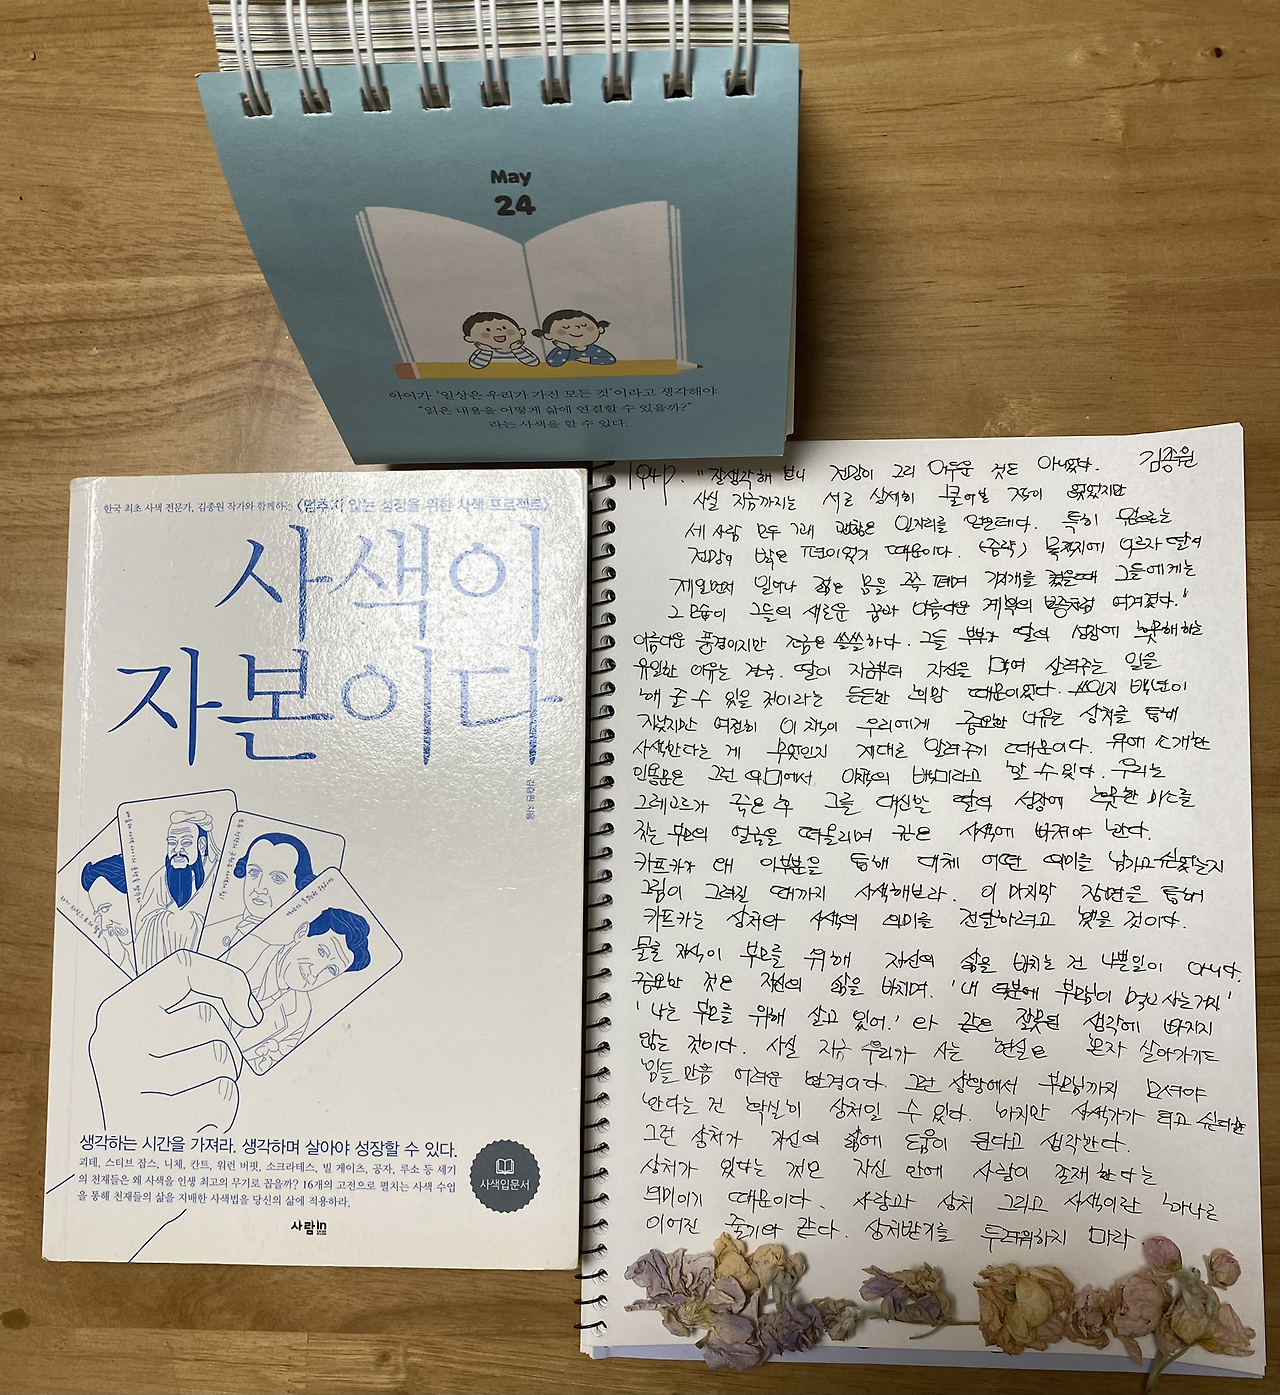 May
24
아이가 '일상은 우리가 가진 모든 것'이라고 생각해야
"읽은 내용을 어떻게 삶에 연결할 수 있을까?"
라는 사색을 할 수 있다.
한국 최초 사색 전문가, 김종원 작가와 함께하는 <멈추지 않는 성장을 위한 사색 프로젝트>
사색이
자본이다
김종원 지음
생각하는 시간을 가져라. 생각하며 살아야 성장할 수 있다.
괴테, 스티브 잡스, 니체, 칸트, 워런 버핏, 소크라테스, 빌 게이츠, 공자, 루소 등 세기
의 천재들은 왜 사색을 인생 최고의 무기로 꼽을까? 16개의 고전으로 펼치는 사색 수업
을 통해 천재들의 삶을 지배한 사색법을 당신의 삶에 적용하라.
사색입문서
사람in
김종원
194p. "잘 생각해 보니 전망이 그리 어두운 것도 아니었다.
사실 지금까지는 서로 상세히 물어본 적이 없었지만
세 사람 모두 꽤 괜찮은 일자리를 얻은데다. 특히 앞으로는
전망이 밝은 편이었기 때문이다. (중략) 목적지에 이르자 딸이
제일먼저 일어나 젊은 몸을 쭉 펴며 기지개를 켰을때 그들에게는
그 모습이 그들의 새로운 꿈과 아름다운 계획의 보증처럼 여겨졌다."
아름다운 풍경이지만 조금은 쓸쓸하다. 그들 부부가 딸의 성장에 흐뭇해하는
유일한 이유는 결국. 딸이 지금부터 자신을 먹여 살려주는 일을
해 줄 수 있을 것이라는 든든한 희망 때문이었다. 쓰인지 백년이
지났지만 여전히 이 책이 우리에게 중요한 이유는 상처를 통해
사색한다는 게 무엇인지 제대로 알려주기 때문이다. 위에 소개한
인용문은 그런 의미에서 이책의 백미라고 할 수 있다. 우리는
그레고르가 죽은 후 그를 대신할 딸의 성장에 흐뭇한 미소를
짓는 부모의 얼굴을 떠올리며 깊은 사색에 빠져야 한다.
카프카가 왜 이부분을 통해 대체 어떤 의미를 남기고 싶었는지
그림이 그려질 때까지 사색해보라. 이 마지막 장면을 통해
카프카는 상처와 사색의 의미를 전달하려고 했을 것이다.
물론 자식이 부모를 위해 자신의 삶을 바치는 건 나쁜일이 아니다.
중요한 것은 자신의 삶을 바치며. '내 덕분에 부모님이 먹고 사는거지'
'나는 부모를 위해 살고 있어.' 와 같은 잘못된 생각에 빠지지
않는 것이다. 사실 지금 우리가 사는 현실은 혼자 살아가기도
힘들 만큼 어려운 환경이다 그런 상황에서 부모님까지 모셔야
한다는 건 확실히 상처일 수 있다. 하지만 사색가가 되고 싶다면
그런 상처가 자신의 삶에 도움이 된다고 생각한다.
상처가 있다는 것은 자신 안에 사랑이 존재한다는
의미이기 때문이다. 사랑과 상처 그리고 사색이란 하나로
이어진 줄기와 같다. 상처받기를 두려워하지 마라.